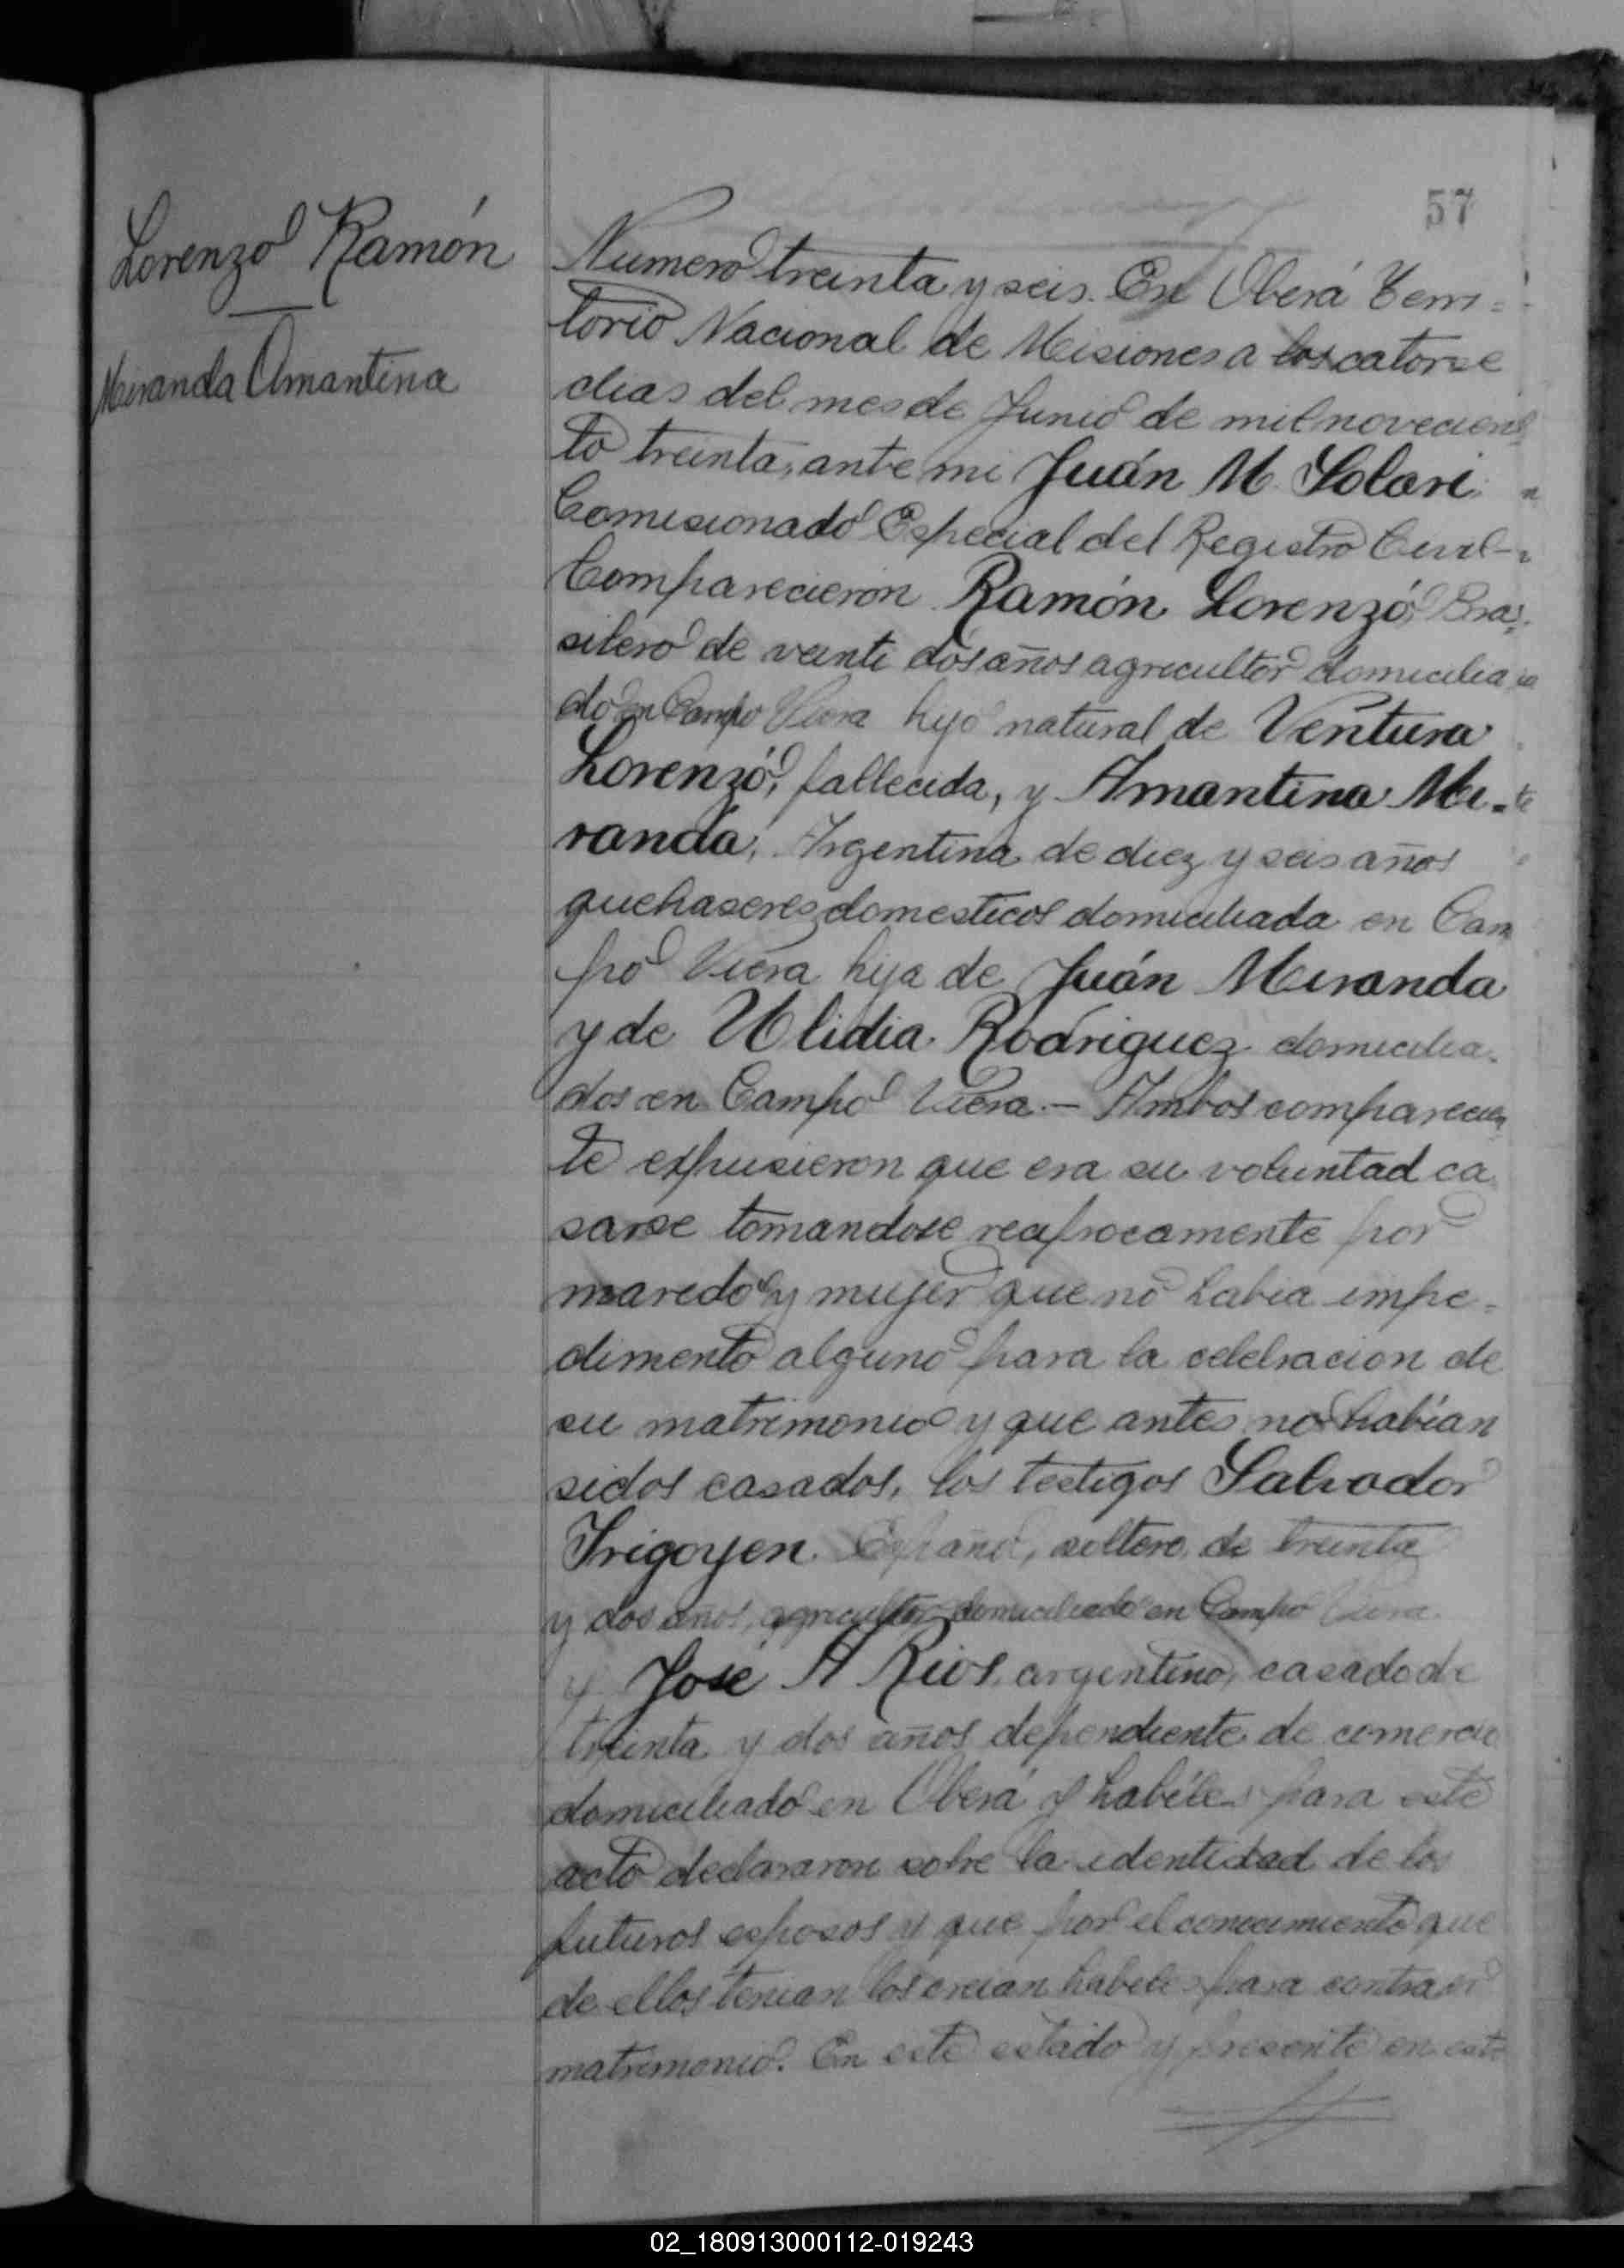 57
Lorenzo Ramón
Miranda Amantina
Numero treinta y seis. En Oberá Terri-
torio Nacional de Misiones a los catorse
dias del mes de Junio de mil novecien
to treinta, ante mi Juán M. Solari
Comisionado Especial del Registro Civil-
Comparecieron Ramón Lorenzó, Bra-
silero de veinti dos años agricultor domicilia
do en Campo Viera hijo natural de Ventura
Lorenzó, fallecida, y Amantina Mi-
randa, Argentina de diez y seis años
quehaseres domesticos domiciliada en Cam
po Viera hija de Juán Miranda
y de Ulidia Rodriguez domicilia-
dos en Campo Viera.- Ambos comparecien
te expusieron que era su voluntad ca
sarse tomandose reciprocamente por
marido y mujer que no habia impe-
dimento alguno para la celebracion de
su matrimonio y que antes no habían
sidos casados, los testigos Salvador
Irigoyen. Español, soltero, de treinta
y dos años, agricultor domiciliado en Campo Viera
y José A Rios, argentino, casado de
treinta y dos años dependiente de comercio
domiciliado en Oberá y habiles para este
acto declararon sobre la identidad de los
futuros esposos y que por el conocimiento que
de ellos tenian los creian habiles para contraer
matrimonio. En este estado y presente en este
02_180913000112-019243